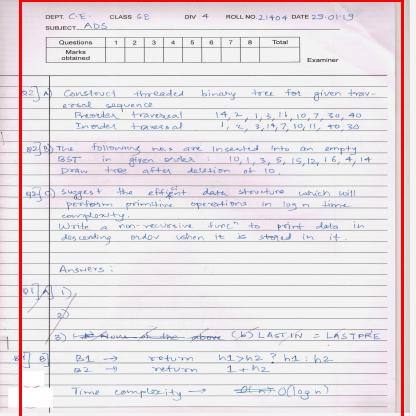 DEPT. C.E. CLASS GB DIV 4 ROLL NO. 21404 DATE 29-01-19
SUBJECT ADS
Questions 1 2 3 4 5 6 7 8 Total
Marks obtained
Examiner
Q2] A) Construct threaded binary tree for given trav-
ersal sequence
Preorder traversal 14, 2, 1, 3, 11, 10, 7, 30, 40
Inorder traversal 1, 2, 3, 14, 7, 10, 11, 40, 30
Q2] B) The following nos are inserted into an empty
BST in given order : 10, 1, 3, 5, 15, 12, 16, 4, 14
Draw tree after deletion of 10.
Q2] C) Suggest the efficient data structure which will
perform primitive operations in log n time
complexity.
Write a non-recursive func" to print data in
descending order when it is stored in it.
Answers :
Q1] A] 1)
2)
3) None of the above (b) LASTIN = LASTPRE
Q1] B] B1 → return h1>h2 ? h1 : h2
B2 → return 1 + h2
Time complexity → O(log n)